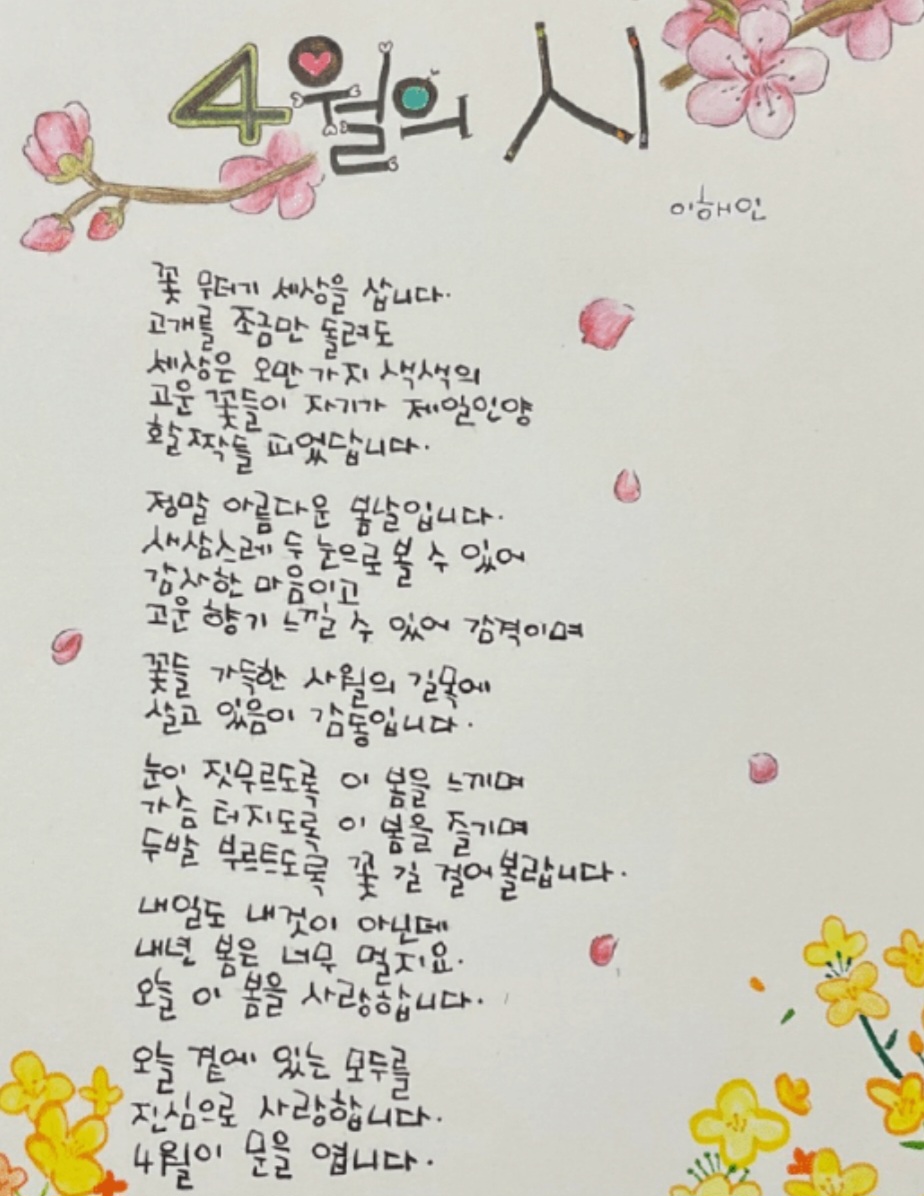 4월의 시
이해인
꽃 무더기 세상을 삽니다.
고개를 조금만 돌려도
세상은 오만가지 색색의
고운 꽃들이 자기가 제일인양
활짝들 피었답니다.
정말 아름다운 봄날입니다.
새삼스레 두 눈으로 볼 수 있어
감사한 마음이고
고운 향기 느낄 수 있어 감격이며
꽃들 가득한 사월의 길목에
살고 있음이 감동입니다.
눈이 짓무르도록 이 봄을 느끼며
가슴 터지도록 이 봄을 즐기며
두발 부르트도록 꽃 길 걸어볼랍니다.
내일도 내것이 아닌데
내년 봄은 너무 멀지요.
오늘 이 봄을 사랑합니다.
오늘 곁에 있는 모두를
진심으로 사랑합니다.
4월이 문을 엽니다.